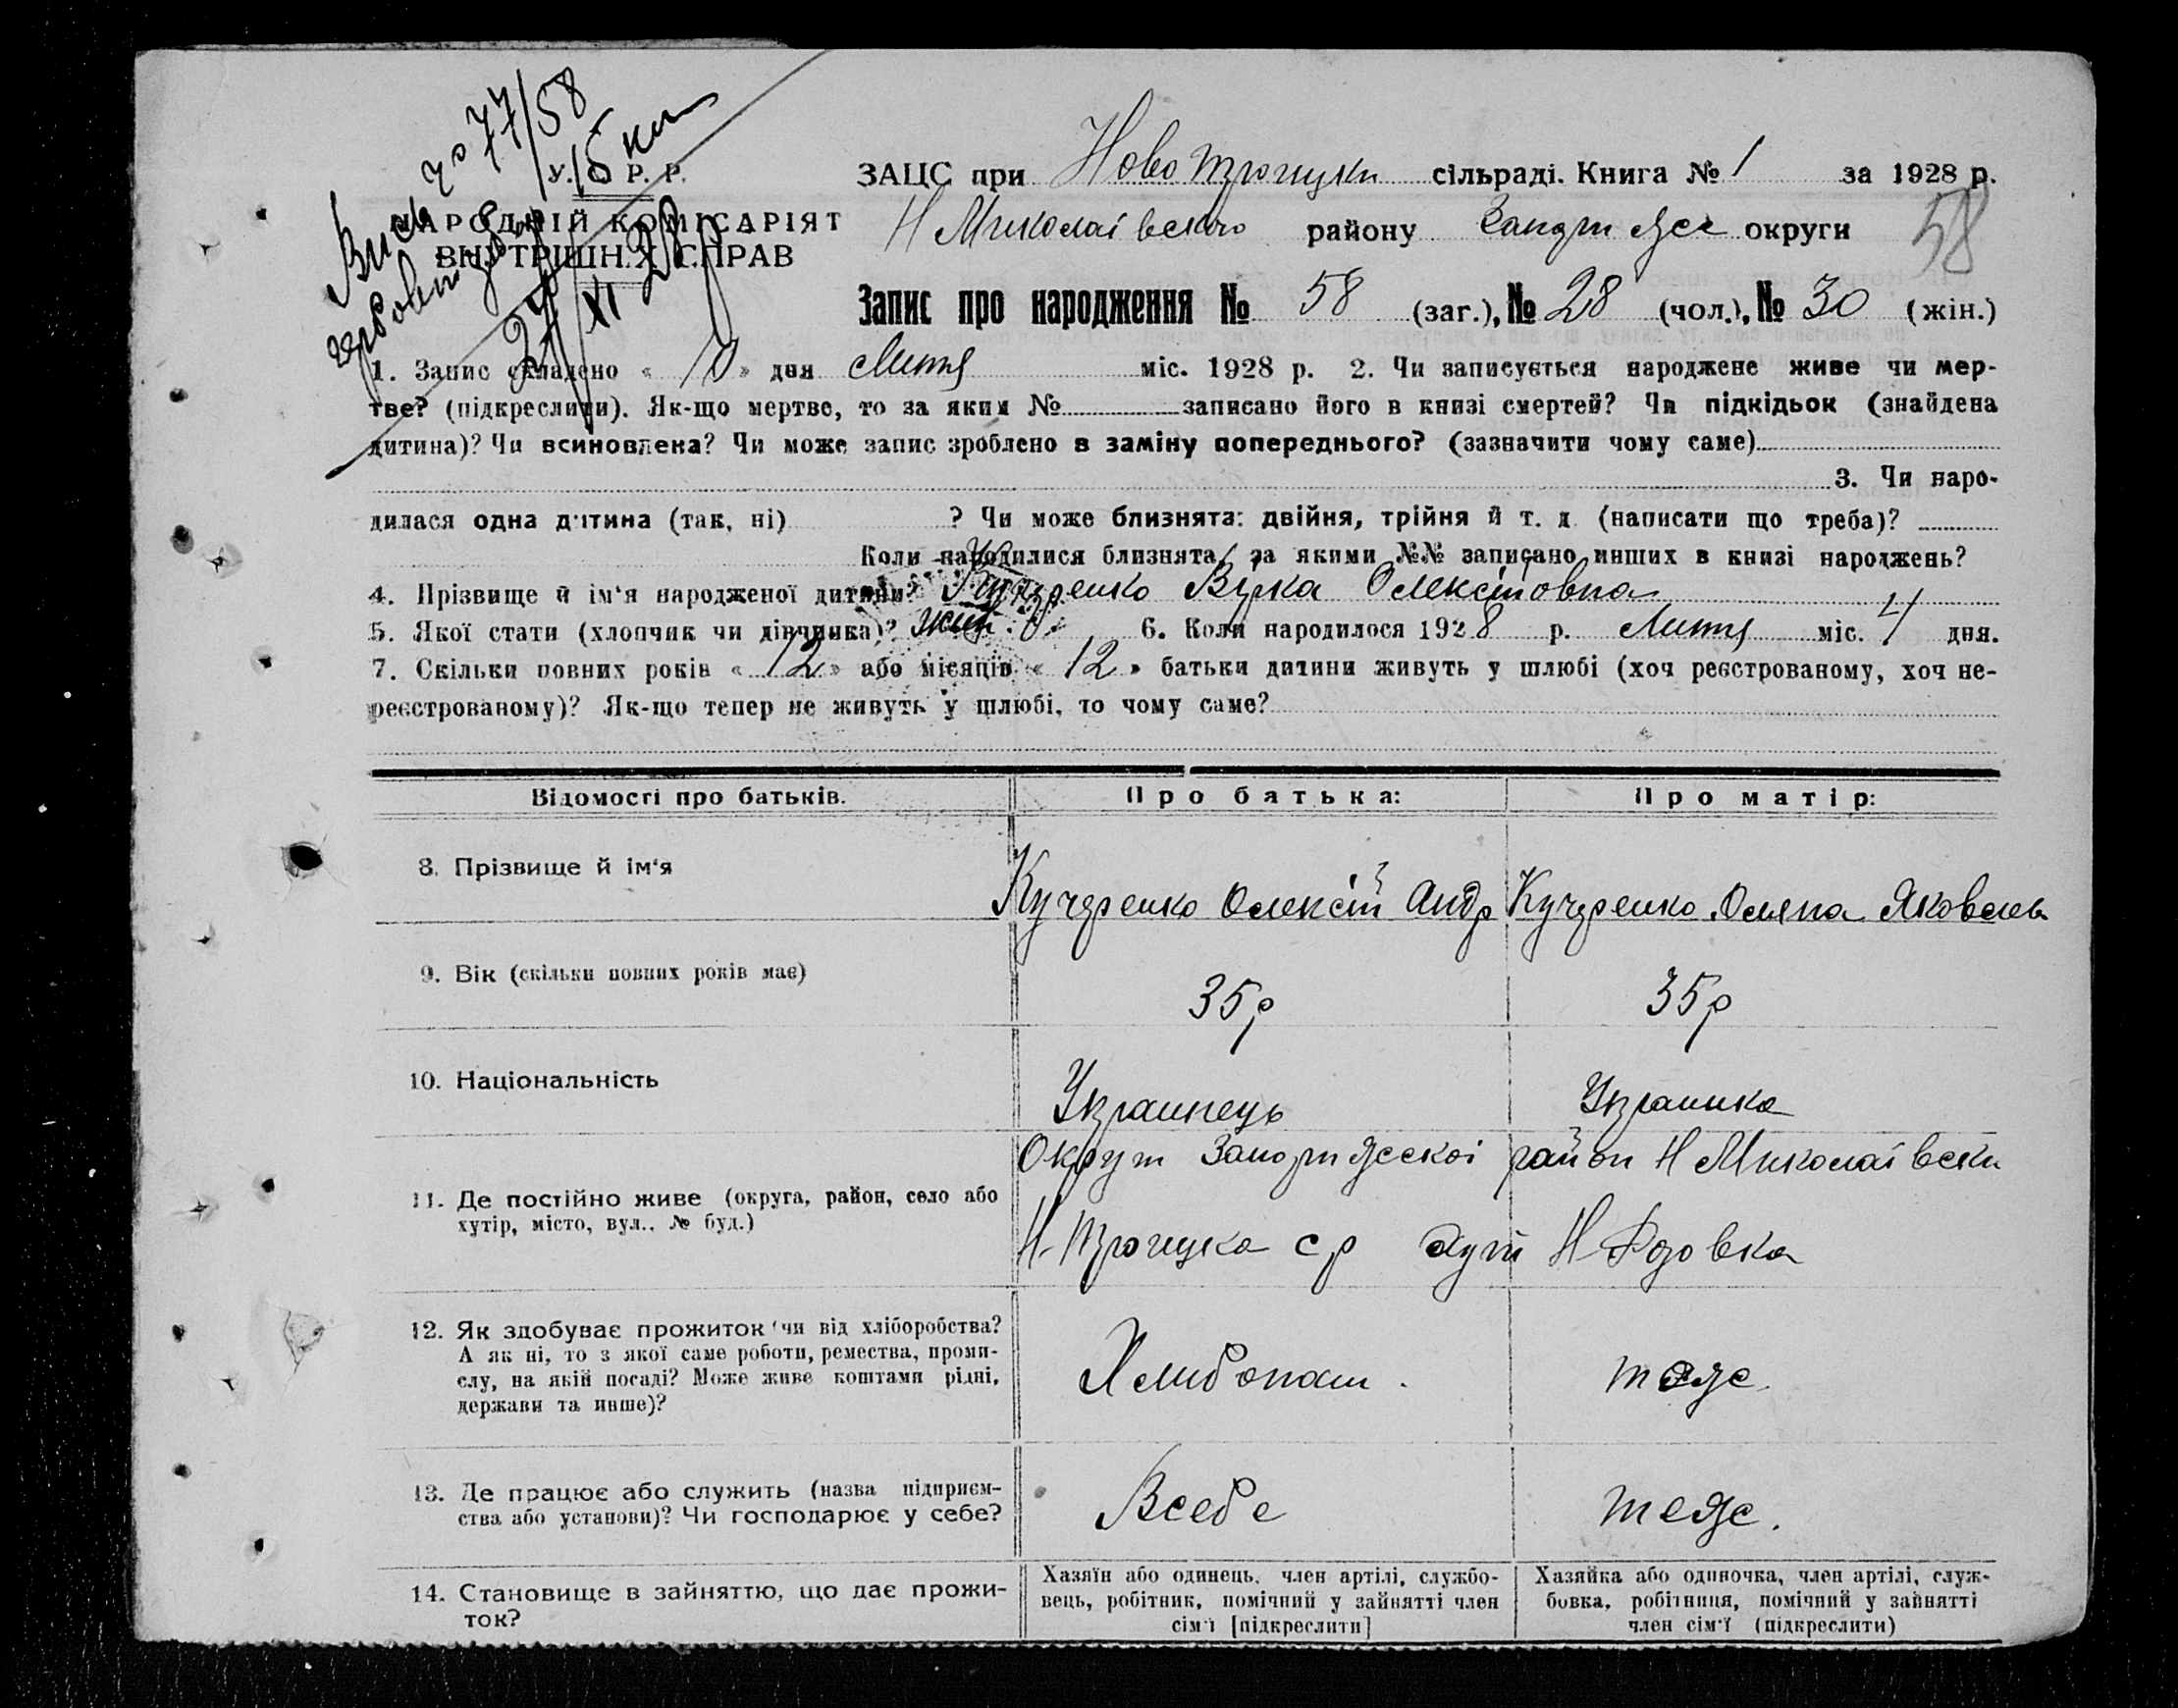 77/58
У. С. Р. Р.
НАРОДНІЙ КОМІСАРІЯТ
ВНУТРІШНІХ СПРАВ
ЗАЦС при Ново Троицки сільраді. Книга № 1 за 1928 р.
Н Миколаівского району округи 58
Запис про народження № 58 (заг.), № 28 (чол.), № 30 (жін.)
1. Запис складено « 10 » дня міс. 1928 р. 2. Чи записується народжене живе чи мер-
тве? (підкреслити). Як-що мертве, то за яким № записано його в книзі смертей? Чи підкідьок (знайдена
дитина)? Чи всиновлена? Чи може запис зроблено в заміну попереднього? (зазначити чому саме)
3. Чи наро-
дилася одна дитина (так, ні) ? Чи може близнята: двійня, трійня й т. д. (написати що треба)?
Коли народилися близнята, за якими №№ записано инших в книзі народжень?
4. Прізвище й ім'я народженої дитини? Вірка Олексіїовна
5. Якої стати (хлопчик чи дівчинка)? жін. 6. Коли народилося 1928 р. міс. 4 дня.
7. Скільки повних років « 12 » або місяців « 12 » батьки дитини живуть у шлюбі (хоч реєстрованому, хоч не-
реєстрованому)? Як-що тепер не живуть у шлюбі, то чому саме?
Відомості про батьків. Про батька: Про матір:
8. Прізвище й ім'я Кучеренко Олексій Андр Кучеренко Оляна Яковлев
9. Вік (скільки повних років має) 35 р 35 р
10. Національність Украинець Украинка
11. Де постійно живе (округа, район, село або
хутір, місто, вул., № буд.)
Округ район Н Миколаівски
Н-Троицка с р хут
12. Як здобуває прожиток чи від хліборобства?
А як ні, то з якої саме роботи, ремества, проми-
слу, на якій посаді? Може живе коштами рідні,
держави та инше)?
Хлибопаш. теже.
13. Де працює або служить (назва підприєм-
ства або установи)? Чи господарює у себе?
Всебе теже.
14. Становище в зайняттю, що дає прожи-
ток?
Хазяїн або одинець, член артілі, службо-
вець, робітник, помічний у зайнятті член
сім'ї [підкреслити]
Хазяйка або одиночка, член артілі, служ-
бовка, робітниця, помічний у зайнятті
член сім'ї (підкреслити)